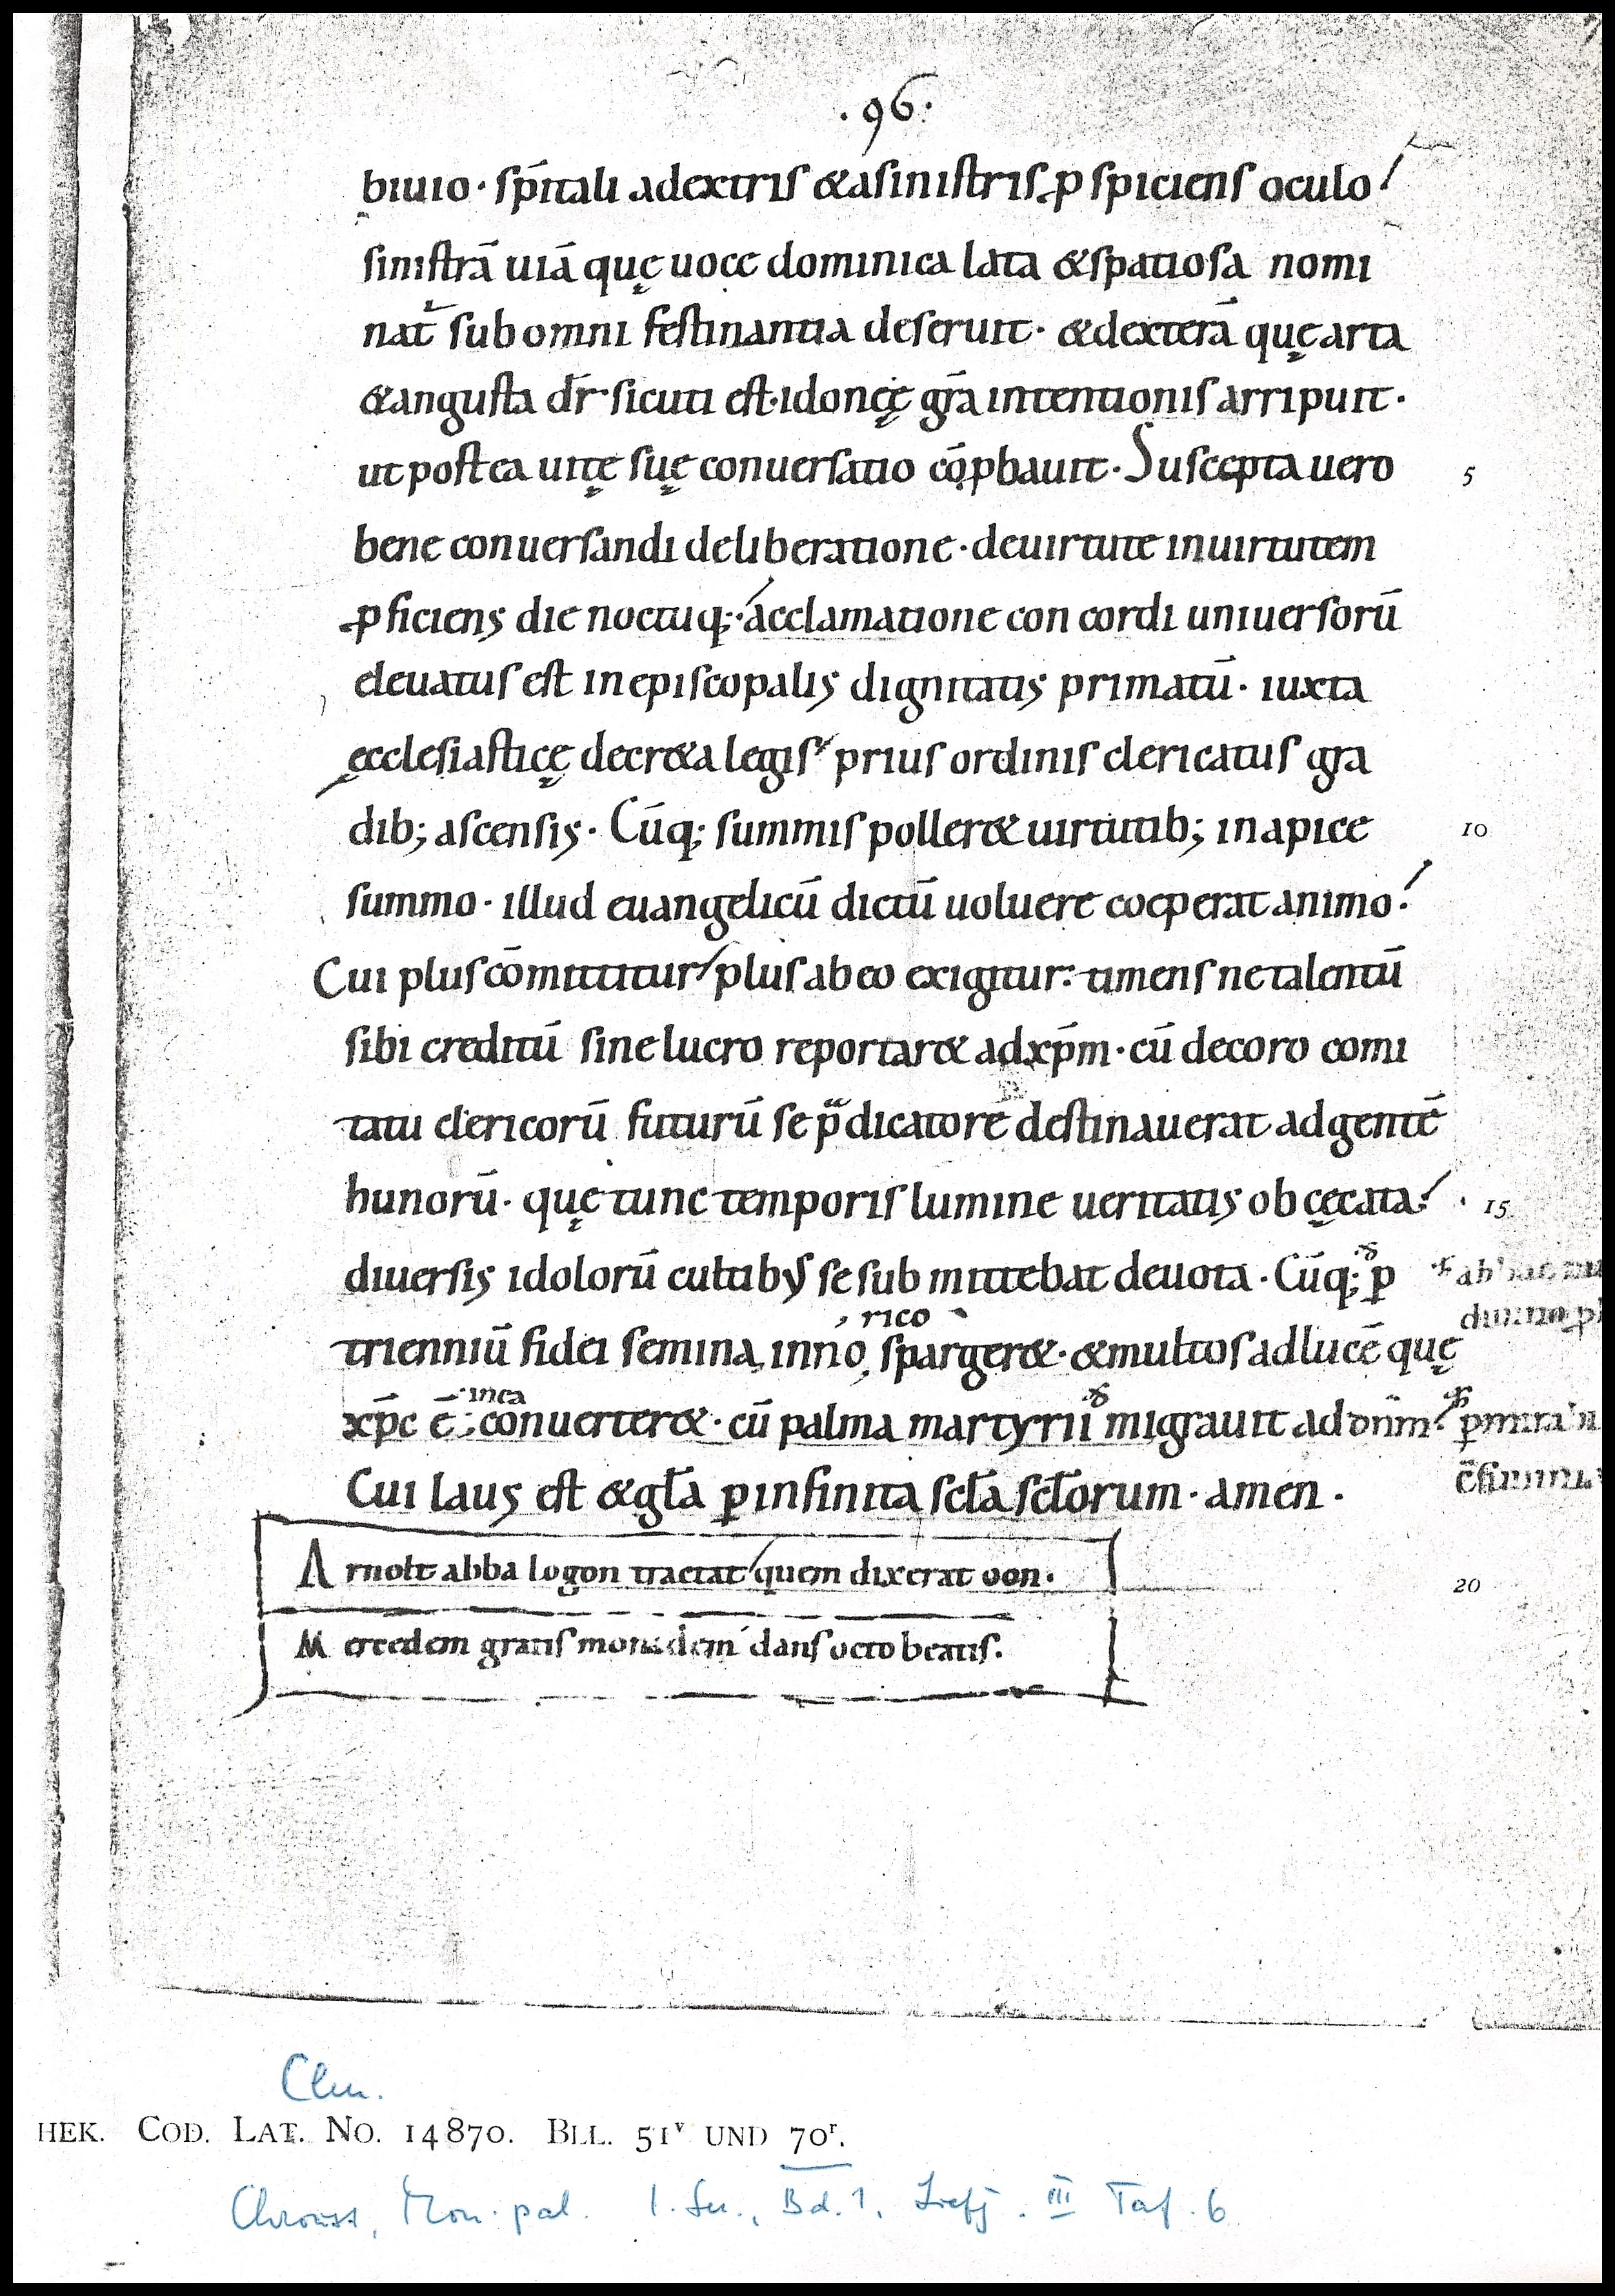 .96.
biuio. sp̄itali adextris &asinistris ꝓspiciens oculo
sinistrā uiā quę uoce dominica lata &spatiosa nomi
nat̄ subomni festinantia deseruit. &dexterā quę arta
&angusta dr̄ sicuti est. idoneę gr̄a intentionis arripuit.
ut postea uitę suę conuersatio cōꝓbauit. Suscepta uero
5
bene conuersandi deliberatione. deuirtute inuirtutem
ꝓficiens die noctuq; acclamatione concordi uniuersorū
eleuatus est inepiscopalis dignitatis primatū. iuxta
ęcclesiasticę decr&a legis prius ordinis clericatus gra
dib; ascensis. Cūq; summis poller& uirtutib; inapice
10
summo. illud euangelicū dictū uoluere coeperat animo.
Cui plus cōmittitur plus abeo exigitur: timens netalentū
sibi creditū sinelucro reportar& adxp̄m. cū decoro comi
tatu clericorū futurū se p̄dicatorē destinauerat adgentē
hunorū. quę tunc temporis lumine ueritatis obcęcata
15
diuersis idolorū cultibus sesubmittebat deuota. Cūq; ꝑ
rico
trienniū fidei semina, inno, sparger&. &multos adlucē quę
inca
xp̄c ē: conuerter&. cū palma martyrii migrauit addnm̄.
Cui laus est &gl̄a ꝑinfinita scl̄a scl̄orum. amen.
Arnolt abba logon tractat quem dixerat oon.
20
Mercedem gratis monadem dans octo beatis.
Clm.
HEK. COD. LAT. NO. 14870. BLL. 51v UND 70r.
Chroust, Mon. pal. I. Ser., Bd. 1, Liefg. III Taf. 6